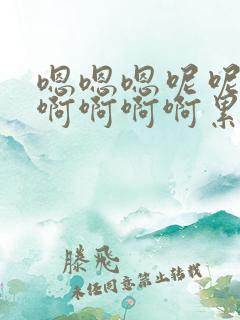 嗯嗯嗯呢呢
啊啊啊啊累
滕飞
未经同意禁止转载